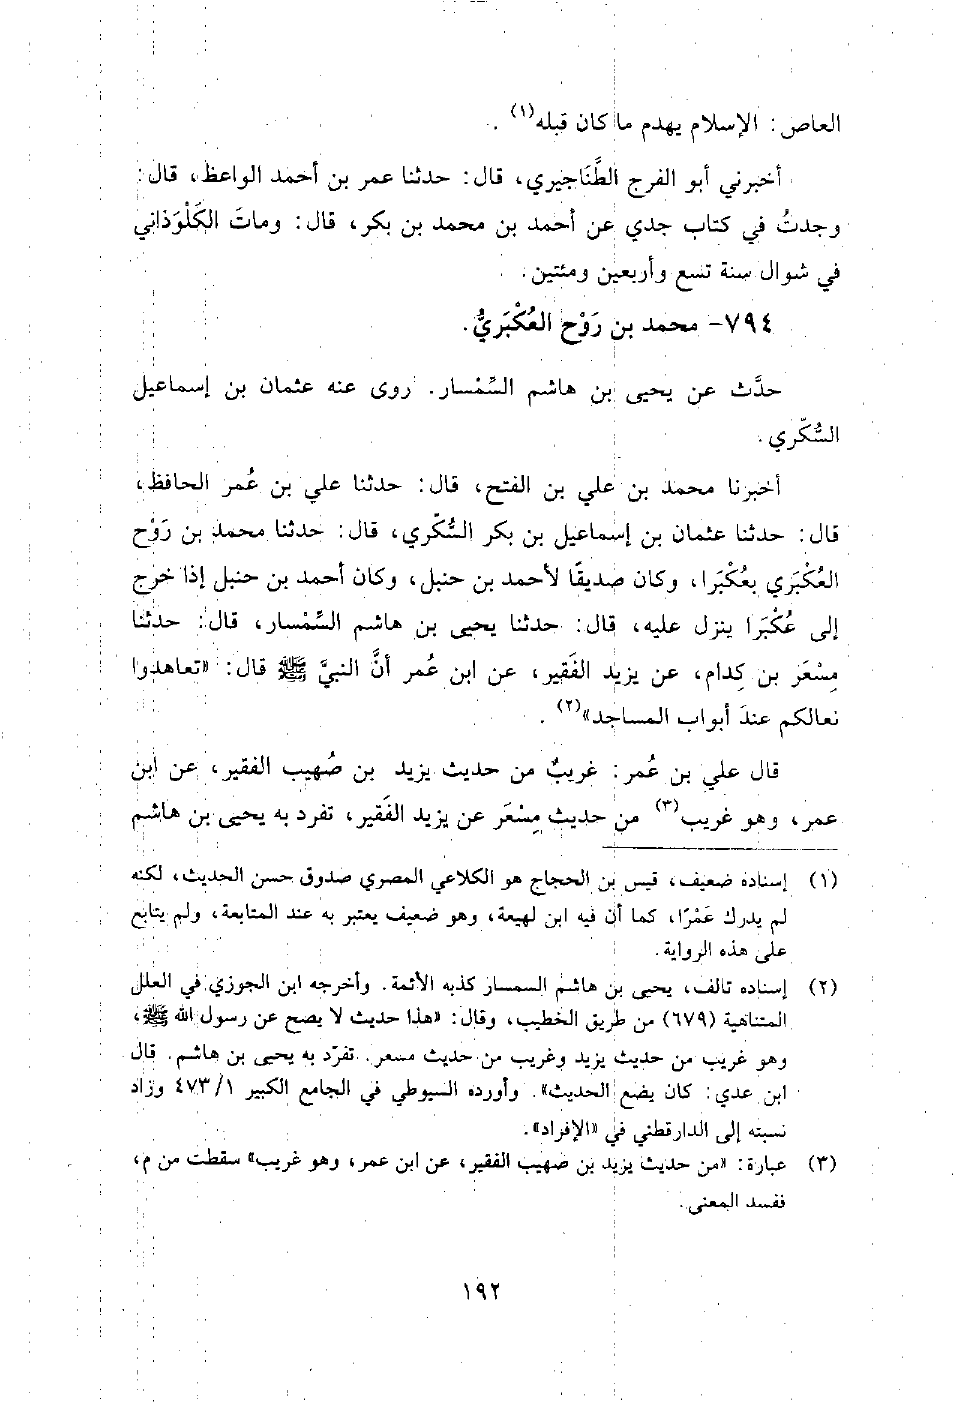 العاص: الإسلام يهدم ما كان قبله(١).
أخبرني أبو الفرج الطَّنَاجيري، قال: حدثنا عمر بن أحمد الواعظ، قال:
وجدتُ في كتاب جدي عن أحمد بن محمد بن بكر، قال: وماتَ الكَلْوَذاني
في شوال سنة تسع وأربعين ومئتين.
٧٩٤- محمد بن رَوْح العُكْبَريُّ.
حدَّث عن يحيى بن هاشم السِّمْسار. روى عنه عثمان بن إسماعيل
السُّكّري.
أخبرنا محمد بن علي بن الفتح، قال: حدثنا علي بن عُمر الحافظ،
قال: حدثنا عثمان بن إسماعيل بن بكر السُّكّري، قال: حدثنا محمد بن رَوْح
العُكْبَري بعُكْبَرا، وكان صديقًا لأحمد بن حنبل، وكان أحمد بن حنبل إذا خرج
إلى عُكْبَرا ينزل عليه، قال: حدثنا يحيى بن هاشم السِّمْسار، قال: حدثنا
مِسْعَر بن كِدام، عن يزيد الفَقير، عن ابن عُمر أنَّ النبيَّ ﷺ قال: «تعاهدوا
نعالكم عندَ أبواب المساجد»(٢).
قال علي بن عُمر: غريبٌ من حديث يزيد بن صُهيب الفقير، عن ابن
عمر، وهو غريب(٣) من حديث مِسْعَر عن يزيد الفَقير، تفرد به يحيى بن هاشم
(١) إسناده ضعيف، قيس بن الحجاج هو الكلاعي المصري صدوق حسن الحديث، لكنه
لم يدرك عَمْرًا، كما أن فيه ابن لهيعة، وهو ضعيف يعتبر به عند المتابعة، ولم يتابع
على هذه الرواية.
(٢) إسناده تالف، يحيى بن هاشم السمسار كذبه الأئمة. وأخرجه ابن الجوزي في العلل
المتناهية (٦٧٩) من طريق الخطيب، وقال: «هذا حديث لا يصح عن رسول الله ﷺ،
وهو غريب من حديث يزيد وغريب من حديث مسعر. تفرّد به يحيى بن هاشم. قال
ابن عدي: كان يضع الحديث». وأورده السيوطي في الجامع الكبير ١/ ٤٧٣ وزاد
نسبته إلى الدارقطني في «الإفراد».
(٣) عبارة: «من حديث يزيد بن صهيب الفقير، عن ابن عمر، وهو غريب» سقطت من م،
ففسد المعنى.
١٩٢